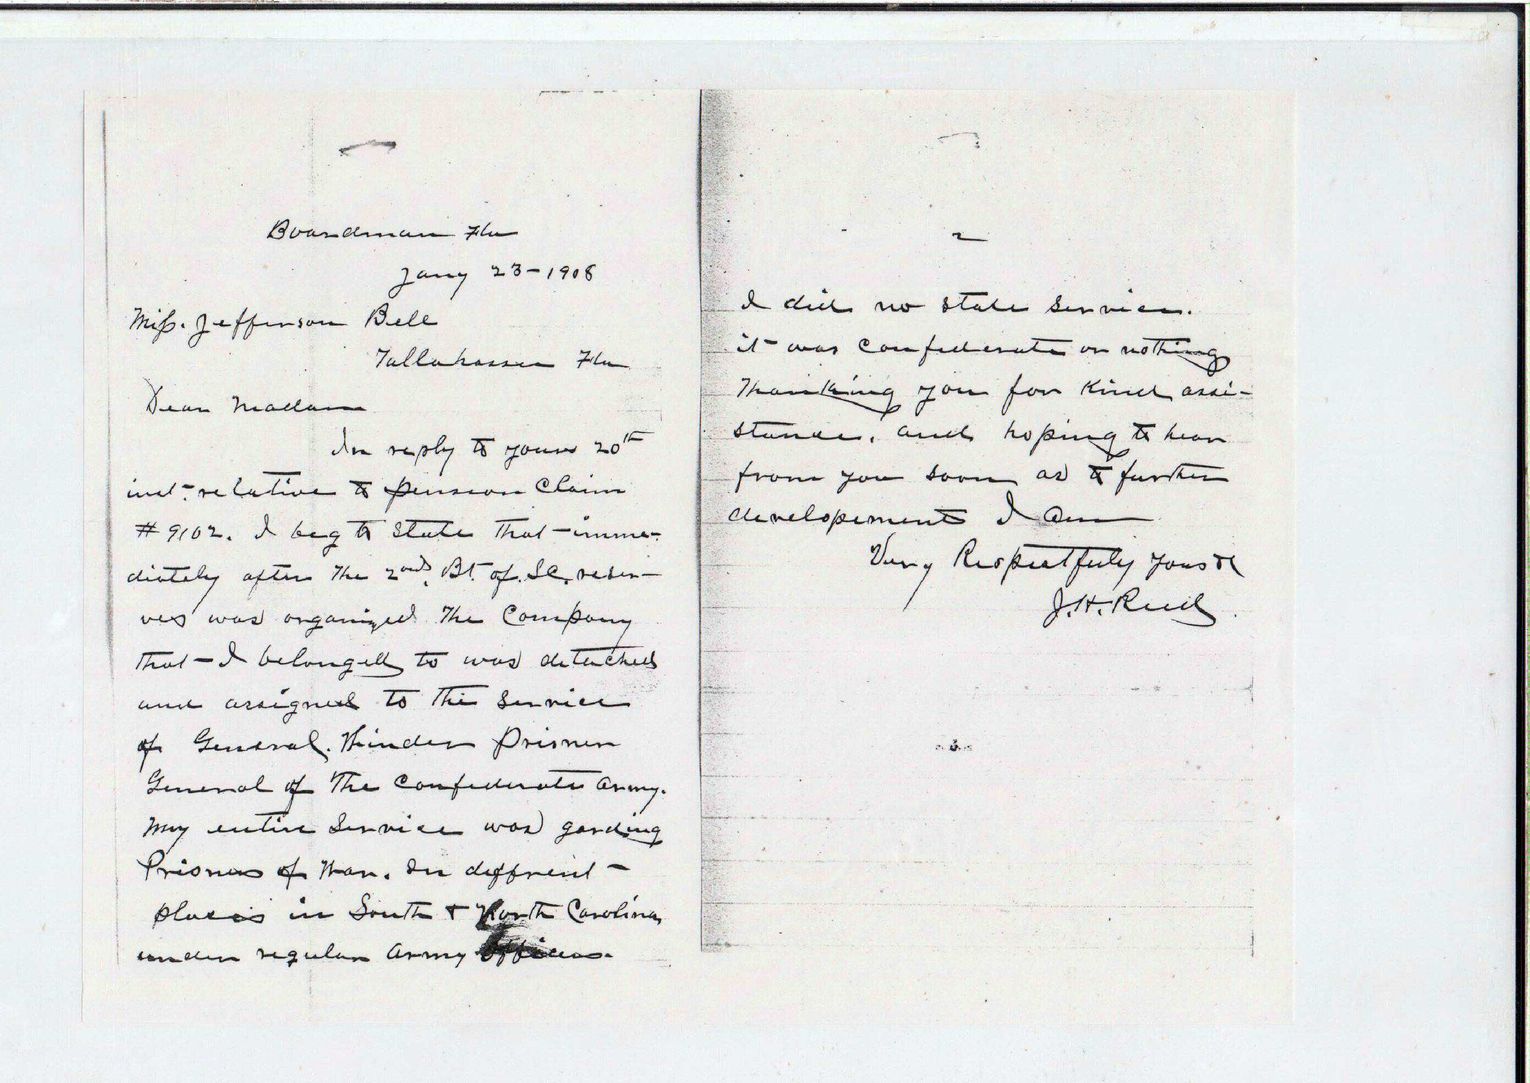 Boardman Fla
Jany 23-1908
Miss. Jefferson Bell
Tallahassee Fla
Dear Madam
In reply to yours 20th
inst- relative to pension Claim
#9102. I beg to state that-imme-
diately after the 2nd. Bt. of S.C. reser-
ves was organized the Company
that-I belonged to was detached
and assigned to the service
of General. Winder Prisner
General of the Confederate Army.
My entire service was garding
Prisners of War. In diffrent-
places in South & North Carolina
under regular Army Officers.
2
I did no state service.
it was Confederate or nothing
Thanking you for kind assi-
stance, and hoping to hear
from you soon as to further
developements I am
Very Respectfuly yours &c
J.H. Reid